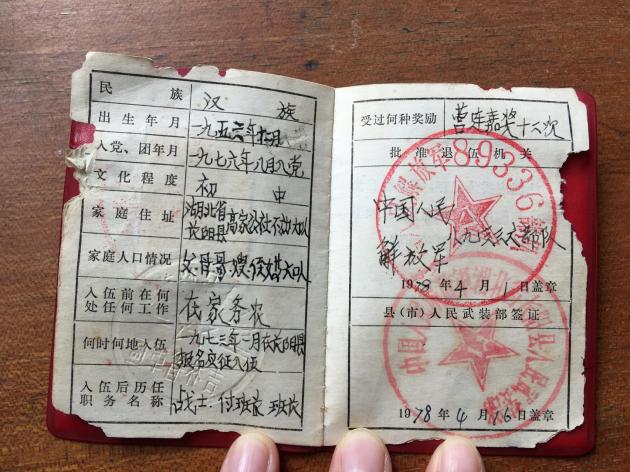 民族 汉族
出生年月 一九五六年
入党、团年月 一九七六年八月入党
文化程度 初中
家庭住址 湖北省
长阳县高家公社
家庭人口情况 父.母.哥.嫂.
入伍前在何
处任何工作 在家务农
何时何地入伍 一九七三年一月 长阳县
报名应征入伍
入伍后历任
职务名称 战士.付班长 班长
受过何种奖励 营连嘉奖十六次
批准退伍机关
中国人民
解放军 部队
1978年4月1日盖章
县（市）人民武装部签证
1978年4月16日盖章
解放军89336部队
中国人民 县人民武装部